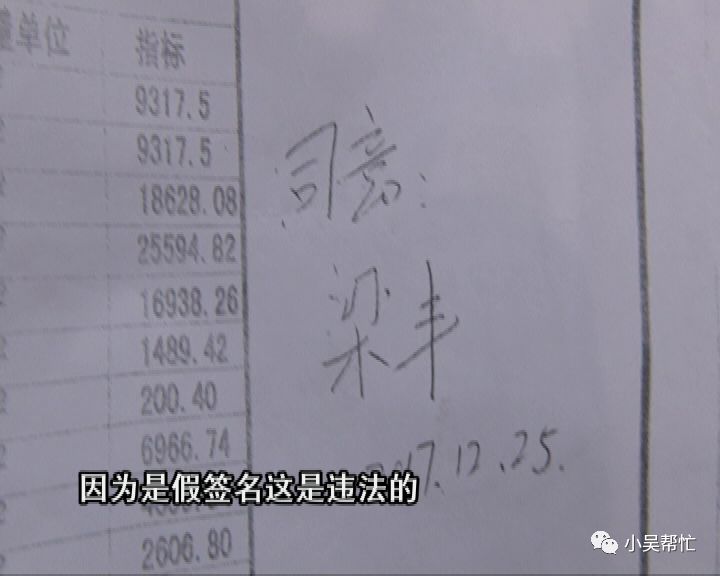 单位
指标
9317.5
9317.5
18628.08
25594.82
16938.26
1489.42
200.40
6966.74
2606.80
同意:
梁丰
2017.12.25.
因为是假签名这是违法的
小吴帮忙